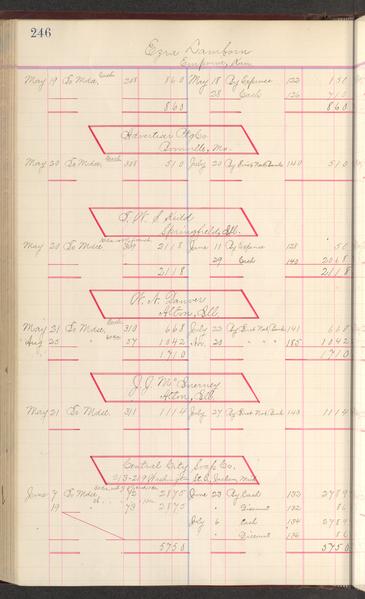 246
Ezra Damborn
Emporia, Kan
May 19 To Mdse Cash 308 8 60 May 18 By Expense 122 1 50
28 Cash 126 7 10
8 60 8 60
Advertiser Ptg Co.
Boonville, Mo.
May 20 To Mdse, Cash 308 5 10 July 20 By First Nat Bank 140 5 10
Springfield, Ill.
May 20 To Mdse 309 21 18 June 11 By Expense 128 50
29 Cash 140 20 68
21 18 21 18
Alton, Ill.
May 21 To Mdse, Cash 310 6 68 July 22 By First Nat Bank 141 6 68
Aug 25 " " 57 10 42 Nov. 20 " " " " 185 10 42
17 10 17 10
J. J. McInerney
Alton, Ill.
May 21 To Mdse. 311 11 14 July 27 By First Nat Bank 143 11 14
Central City Soap Co.
213-219 Washington St. E, Jackson, Mich
June 7 To Mdse 72 28 75 June 23 By Cash 132 27 89
19 " " 73 28 75 " Discount 132 86
July 6 " Cash 134 27 89
" Discount 134 86
57 50 57 50